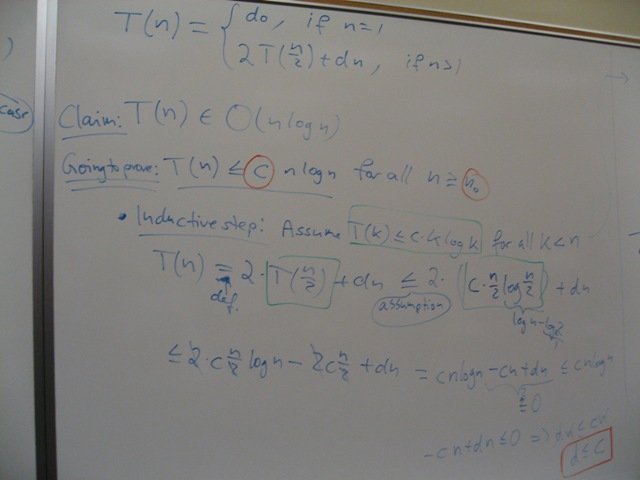 T(n) = { d₀, if n=1
2T(n/2)+dn, if n>1
case
Claim: T(n) ∈ O(n log n)
Going to prove: T(n) ≤ C n log n for all n ≥ n₀
• Inductive step: Assume T(k) ≤ c·k log k for all k<n
T(n) = 2·T(n/2) + dn ≤ 2·(c·n/2 log n/2) + dn
def. assumption log n - log 2
≤ 2·c n/2 log n - 2c n/2 + dn = cn log n - cn + dn ≤ cn log n
≤ 0
-cn+dn ≤ 0 ⇒ dn ≤ cn
d ≤ C